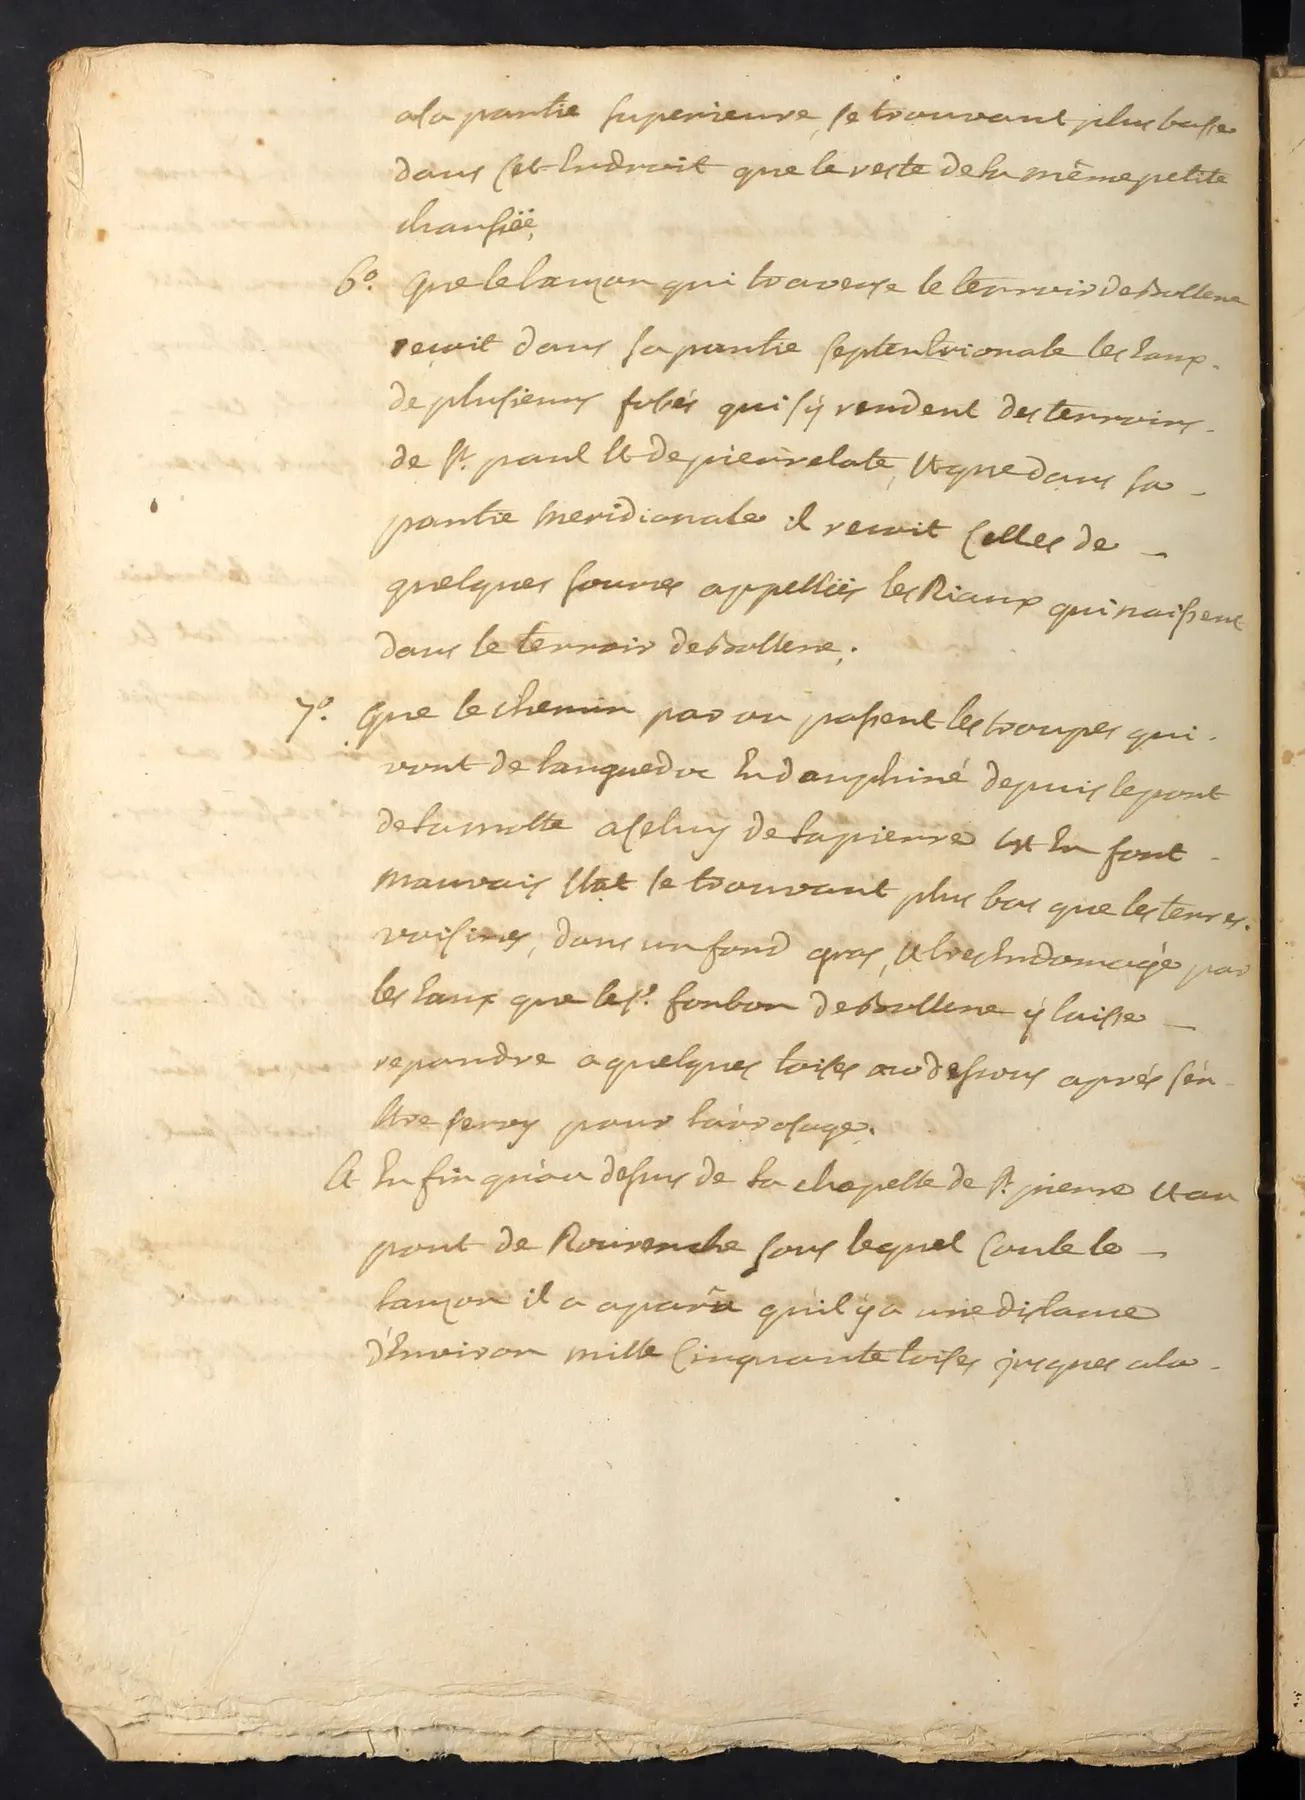 a la partie superieure, se trouvant plus basse
dans cet Endroit que le reste de la mème petite
chaussëë,
6.º Que le Lauzon qui traverse le terroir de Bollene
reçoit dans sa partie septentrionale les Eaux
de plusieurs fossés qui s'ÿ rendent des terroirs
de S.t paul Et de pierrelate, Et que dans sa
partie meridionale il reçoit celles de
quelques sources appelléës les Riaux qui naissent
dans le terroir de Bollene;
7.º Que le chemin par ou passent les troupes qui
vont de languedoc En dauphiné depuis le pont
de la motte a celuy de la pierre Est En fort
mauvais Etat se trouvant plus bas que les terres
voisines, dans un fond gras, Et tres Endomagé par
les Eaux que le S.r forbon de Bollene ÿ laisse
repandre a quelques toises au dessous aprés s'én
Etre servy pour l'árrosage.
Et Enfin qu'au dessus de la chapelle de S.t pierre Et au
pont de Rourenche sous lequel coule le
Lauzon il a aparû qu'il ÿ a une distance
d'Environ mille cinquante toises jusques a la